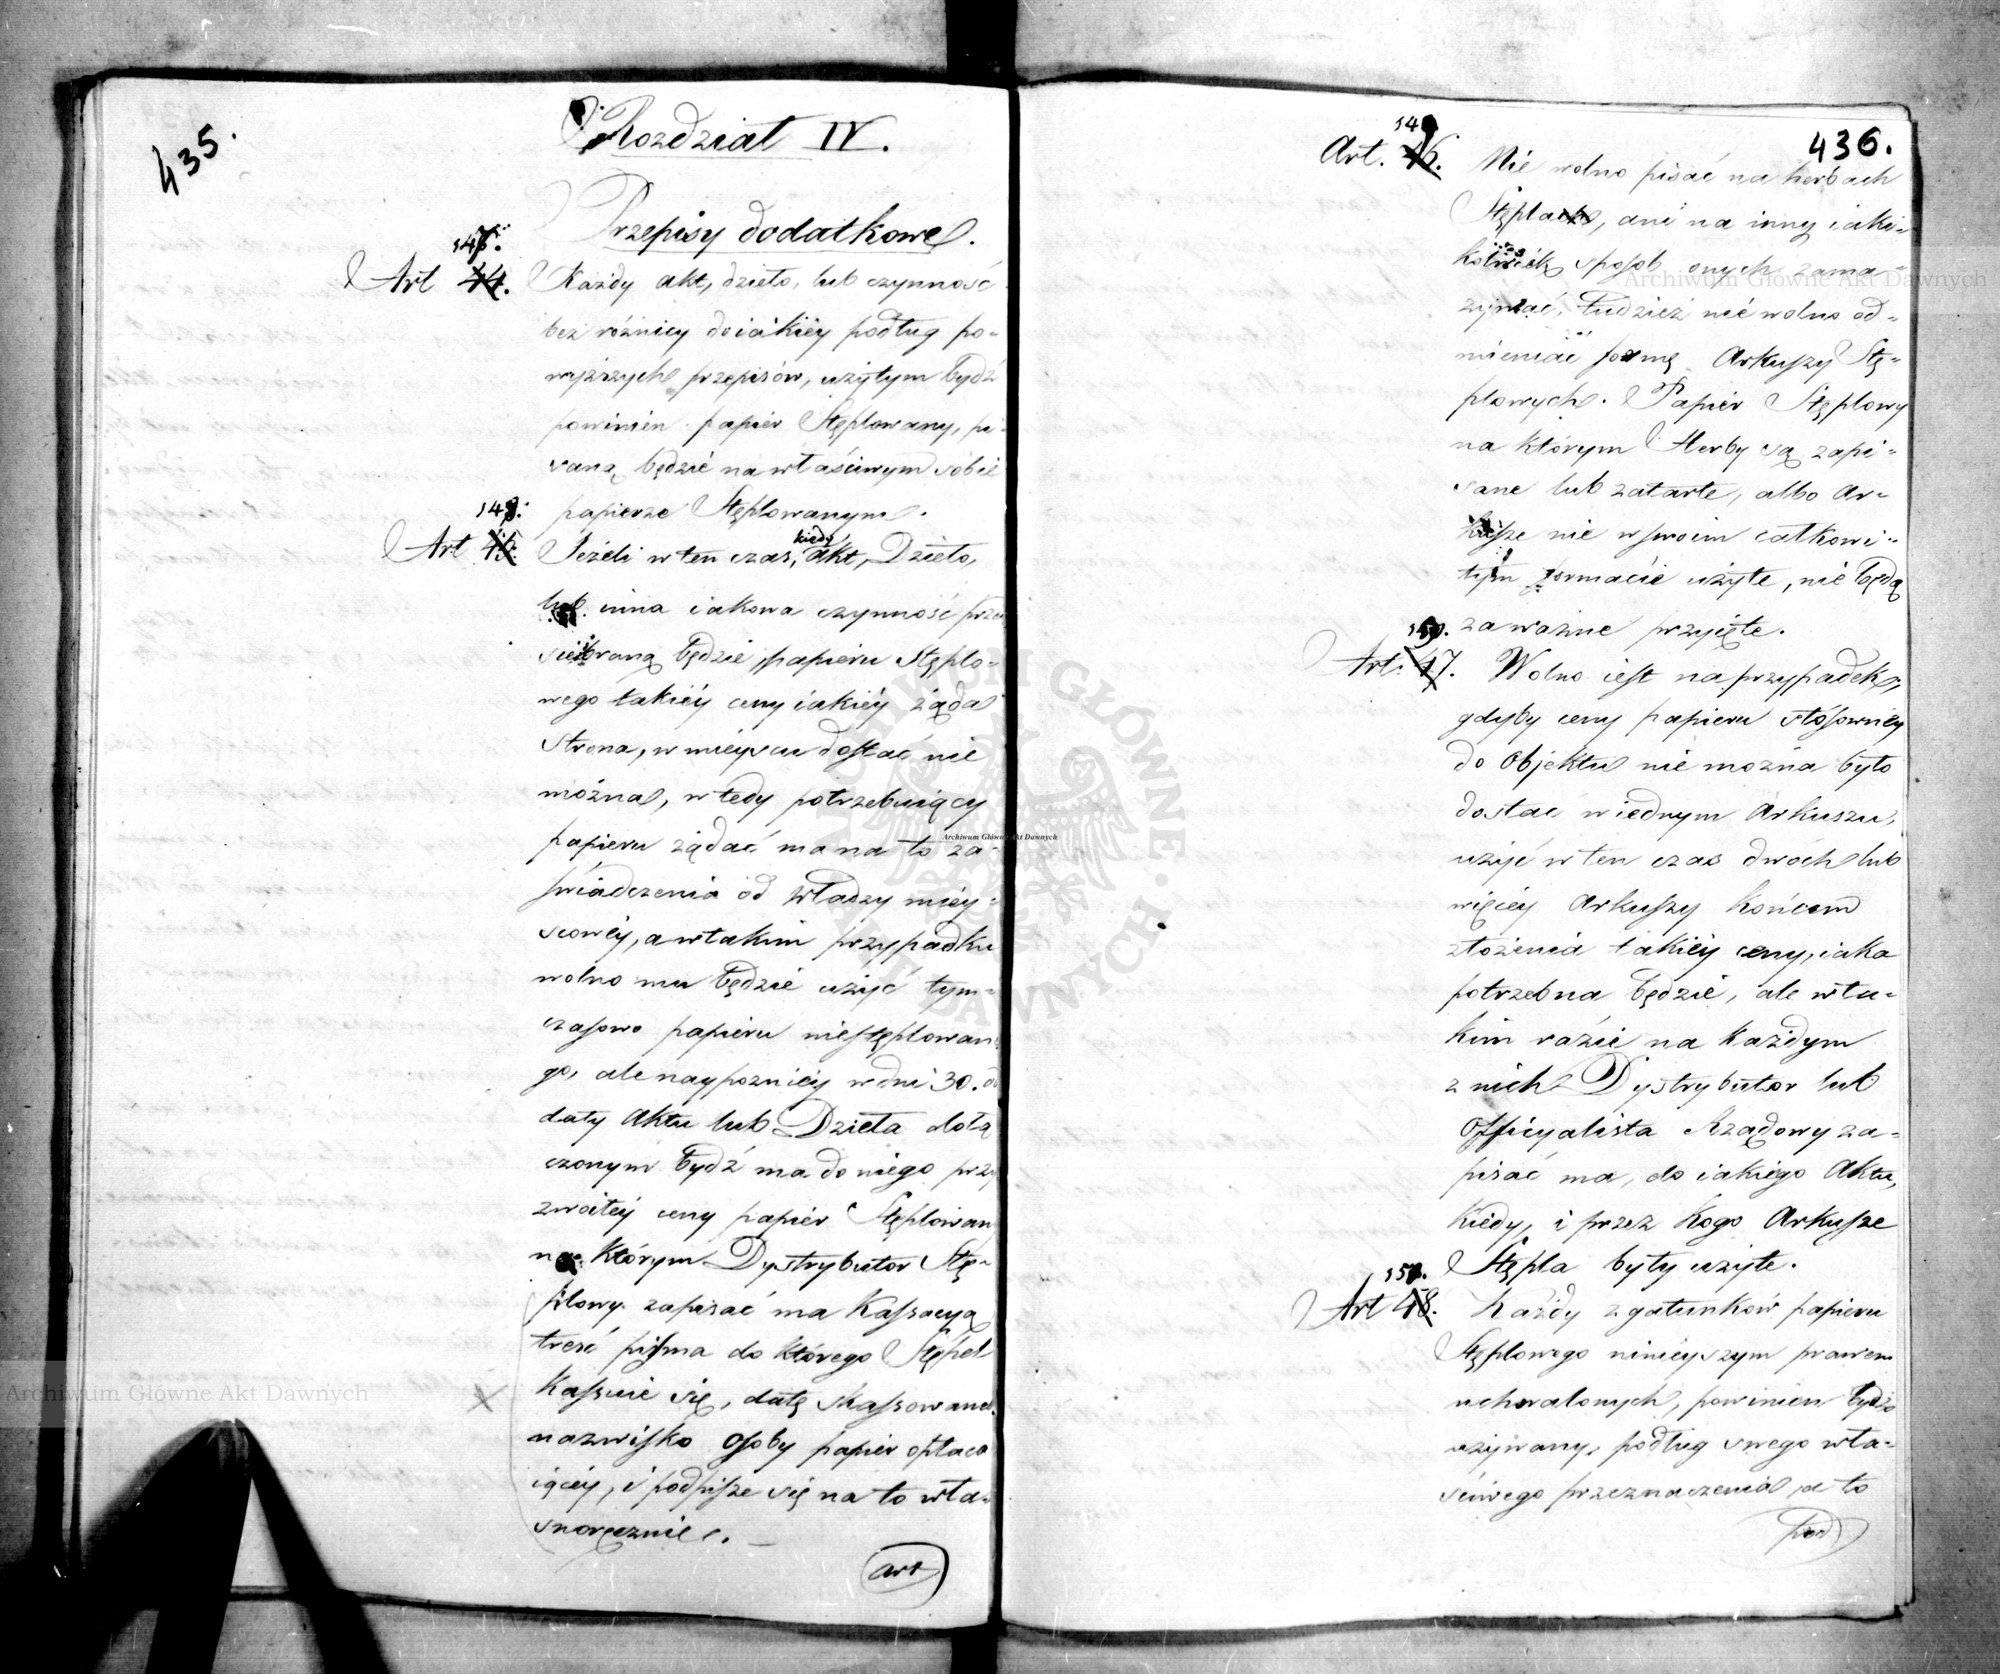 435.
Rozdział IV.
Przepisy dodatkowe.
Art 44. Każdy akt, dzieło, lub czynność
bez różnicy do iakiéy podług po-
wyższych przepisów, użytym bydź
powinien papiér Stęplowany, pi-
saną będzié na właściwym sobié
papierze Stęplowanym.
148.
Art 45. Jeżeli w ten czas, kiedy akt, Dzieło,
lub inna iakowa czynność przed
siebraną będzie, papieru Stęplo-
wego takiéy ceny iakiéy żąda
strona, w mieyscu dostać nie
można, wtedy potrzebuiący
papieru żądać ma na to za-
świadczenia od władzy miéy-
scowéy, a w takim przypadku
wolno mu będzié użyć tym-
czasowo papieru niestęplowane
go, ale naypozniéy w dni 30. od
daty Aktu lub Dzieła dołą
czonym bydź ma do niego przy
zwoitéy ceny papiér Stęplowany
na którym Dystrybutor Stę-
plowy zapisać ma Kassacyą
treść pisma do którego Stępel
Kassuie się, datę skassowania
nazwisko osoby papiér opłaca
iącéy, i podpisze się na to wła-
snoręcznie.
art
436.
149
Art. 46. Nie wolno pisać na herbach
Stępla, ani na inny iaki-
kolwiek sposób onych zama-
zywać, tudzież nié wolno od-
mieniać formę Arkuszy Stę-
plowych. Papiér Stęplowy
na którym Herby są zapi-
sane lub zatarte, albo Ar-
kusze nie w swoim całkowi-
tym formacie użyte, nié będą
za ważne przyięte.
150.
Art. 47. Wolno iest na przypadek,
gdyby ceny papieru stósownéy
do Objektu nie można było
dostać w iednym Arkuszu,
użyć w ten czas dwóch lub
więcéy Arkuszy końcem
złożenia takiéy ceny, iaka
potrzebna będzié, ale w ta-
kim razie na każdym
z nich Dystrybutor lub
Officyalista Rządowy za-
pisać ma, do iakiego Aktu,
kiedy, i przez kogo Arkusze
Stępla były użyte.
151.
Art 48. Każdy z gatunków papieru
Stęplowego ninieyszym prawem
uchwalonych, powinien bydź
używany, podług swego wła-
ściwego przeznaczenia, a to
pod
Archiwum Główne Akt Dawnych
Archiwum Główne Akt Dawnych
Archiwum Główne Akt Dawnych
ARCHIWUM GŁÓWNE AKT DAWNYCH